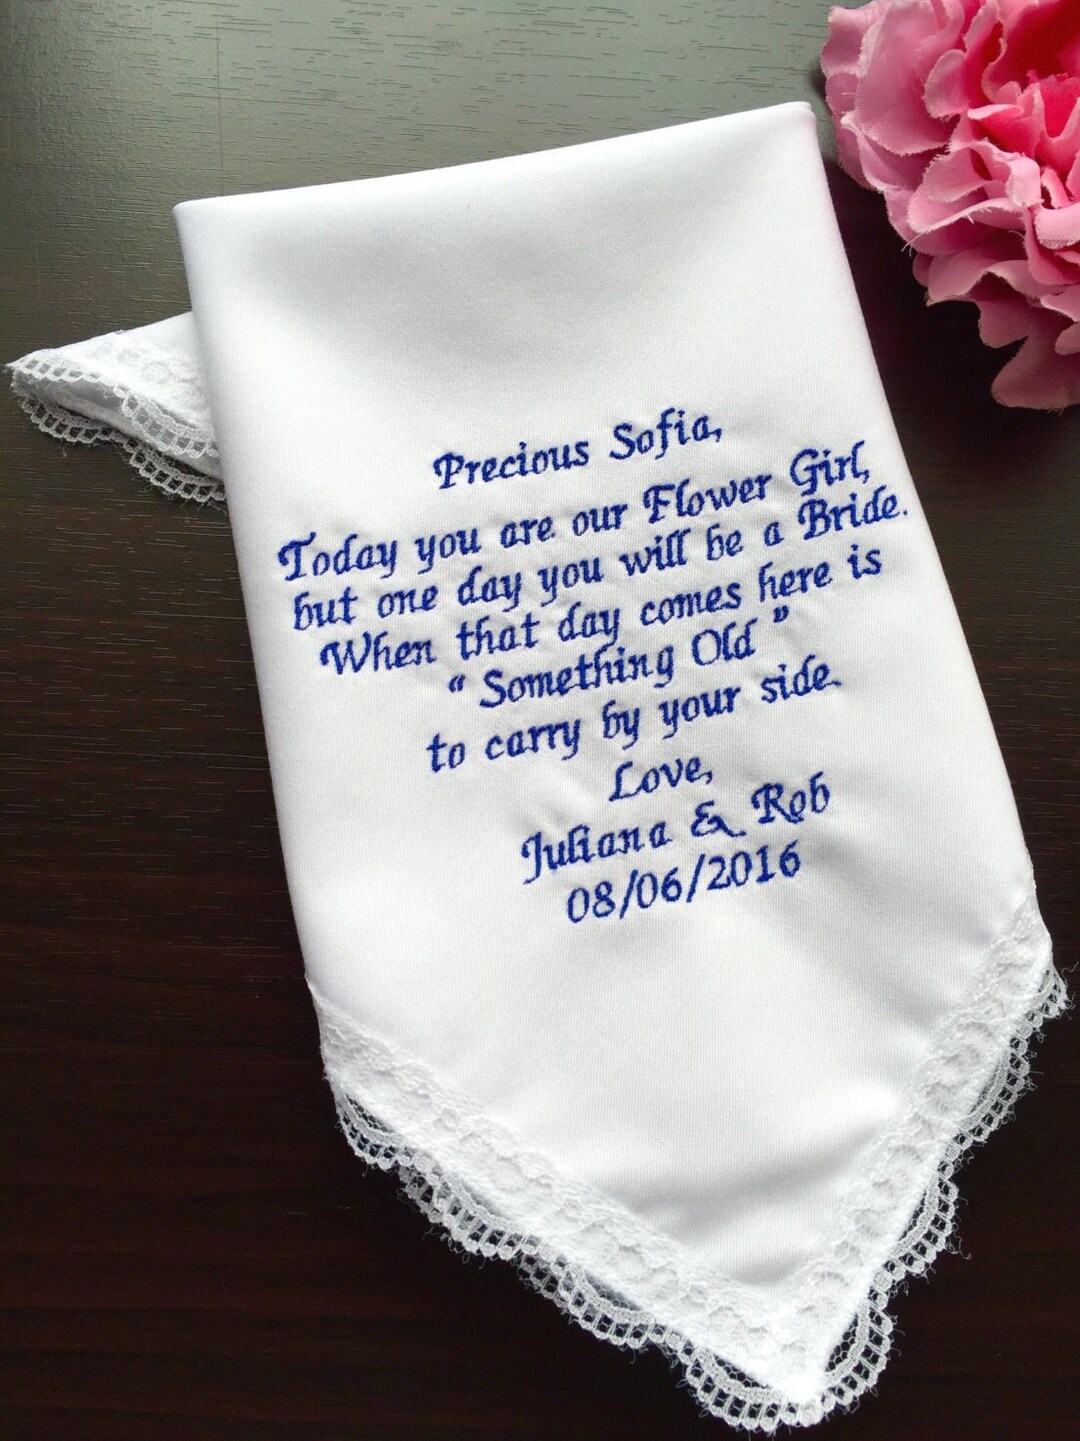 Precious Sofia,
Today you are our Flower Girl,
but one day you will be a Bride.
When that day comes here is
“ Something Old ”
to carry by your side.
Love,
Juliana & Rob
08/06/2016